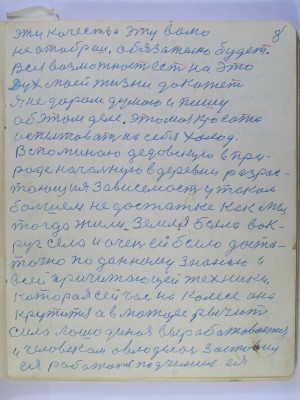 8
эти качества эту само
не отобрал. обязательно будет.
Вся возможност ест на это
Дух моей жизни докажет
я не даром думаю и пишу
об этом деле. Это моя красота
испытоват на себя холод.
Вспоминаю дедовскую в при-
роде началную в деревни разрас-
тающия зависемость у таком
болшем недостатке как мы
тогда жили. Земля была вок-
руг села и очень ей было доста-
точно по данному знанию и
всей причитающей техники.
которая сейчас на колесе она
крутится а в моторе рычит
сила лошодиная вырабатовается
и человеком овлоделая заставил
ея работат подчиние ей